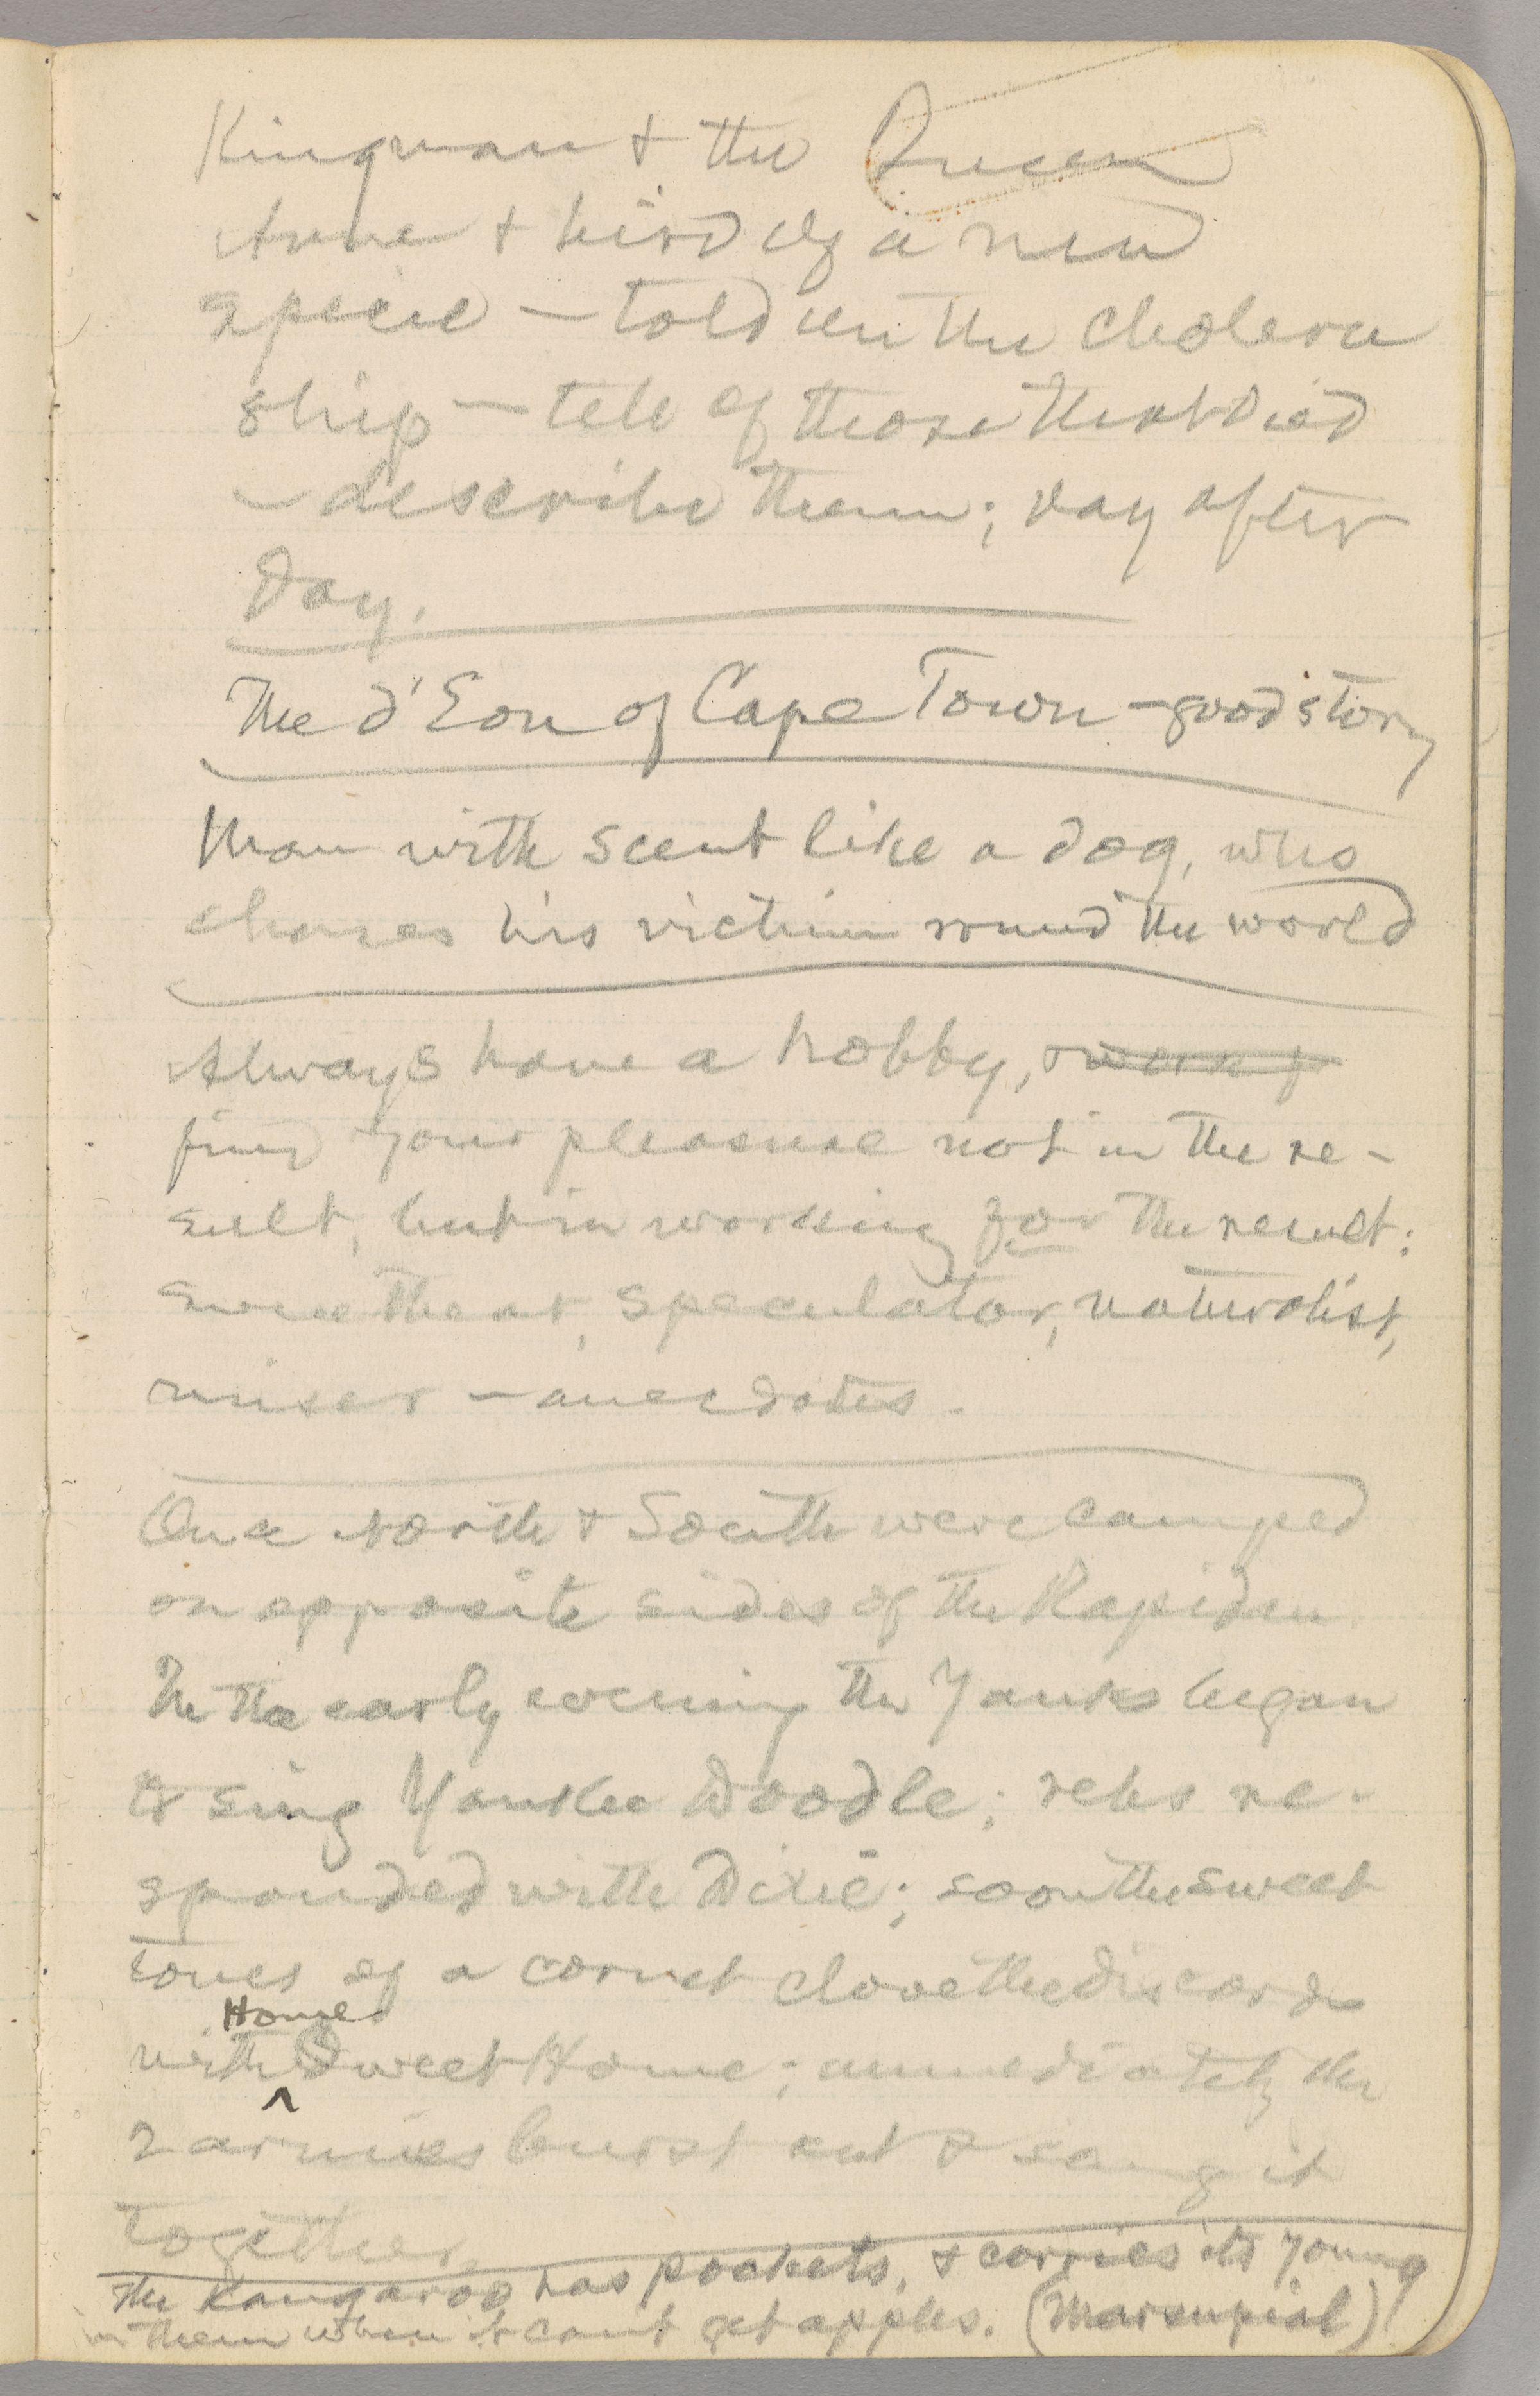 Kingman & the Queen
Anne & bird of a new
specie — told on the cholera
ship — tell of those that died
— describe them; day after
day.
The d'Eon of Cape Town — good story
Man with scent like a dog, who
chases his victim round the world
Always have a hobby,
find your pleasure not in the re-
sult, but in working for the result:
sweetheart, speculator, naturalist,
miser — anecdotes.
Once North & South were camped
on opposite sides of the Rapidan
In the early evening the Yanks began
to sing Yankee Doodle; rebs re-
sponded with Dixie; soon the sweet
tones of a cornet clove the discords
Home
with Sweet Home; immediately the
2 armies burst out & sang it
together.
The Kangaroo has pockets, & carries its young
in them when it can't get apples. (Marsupial)